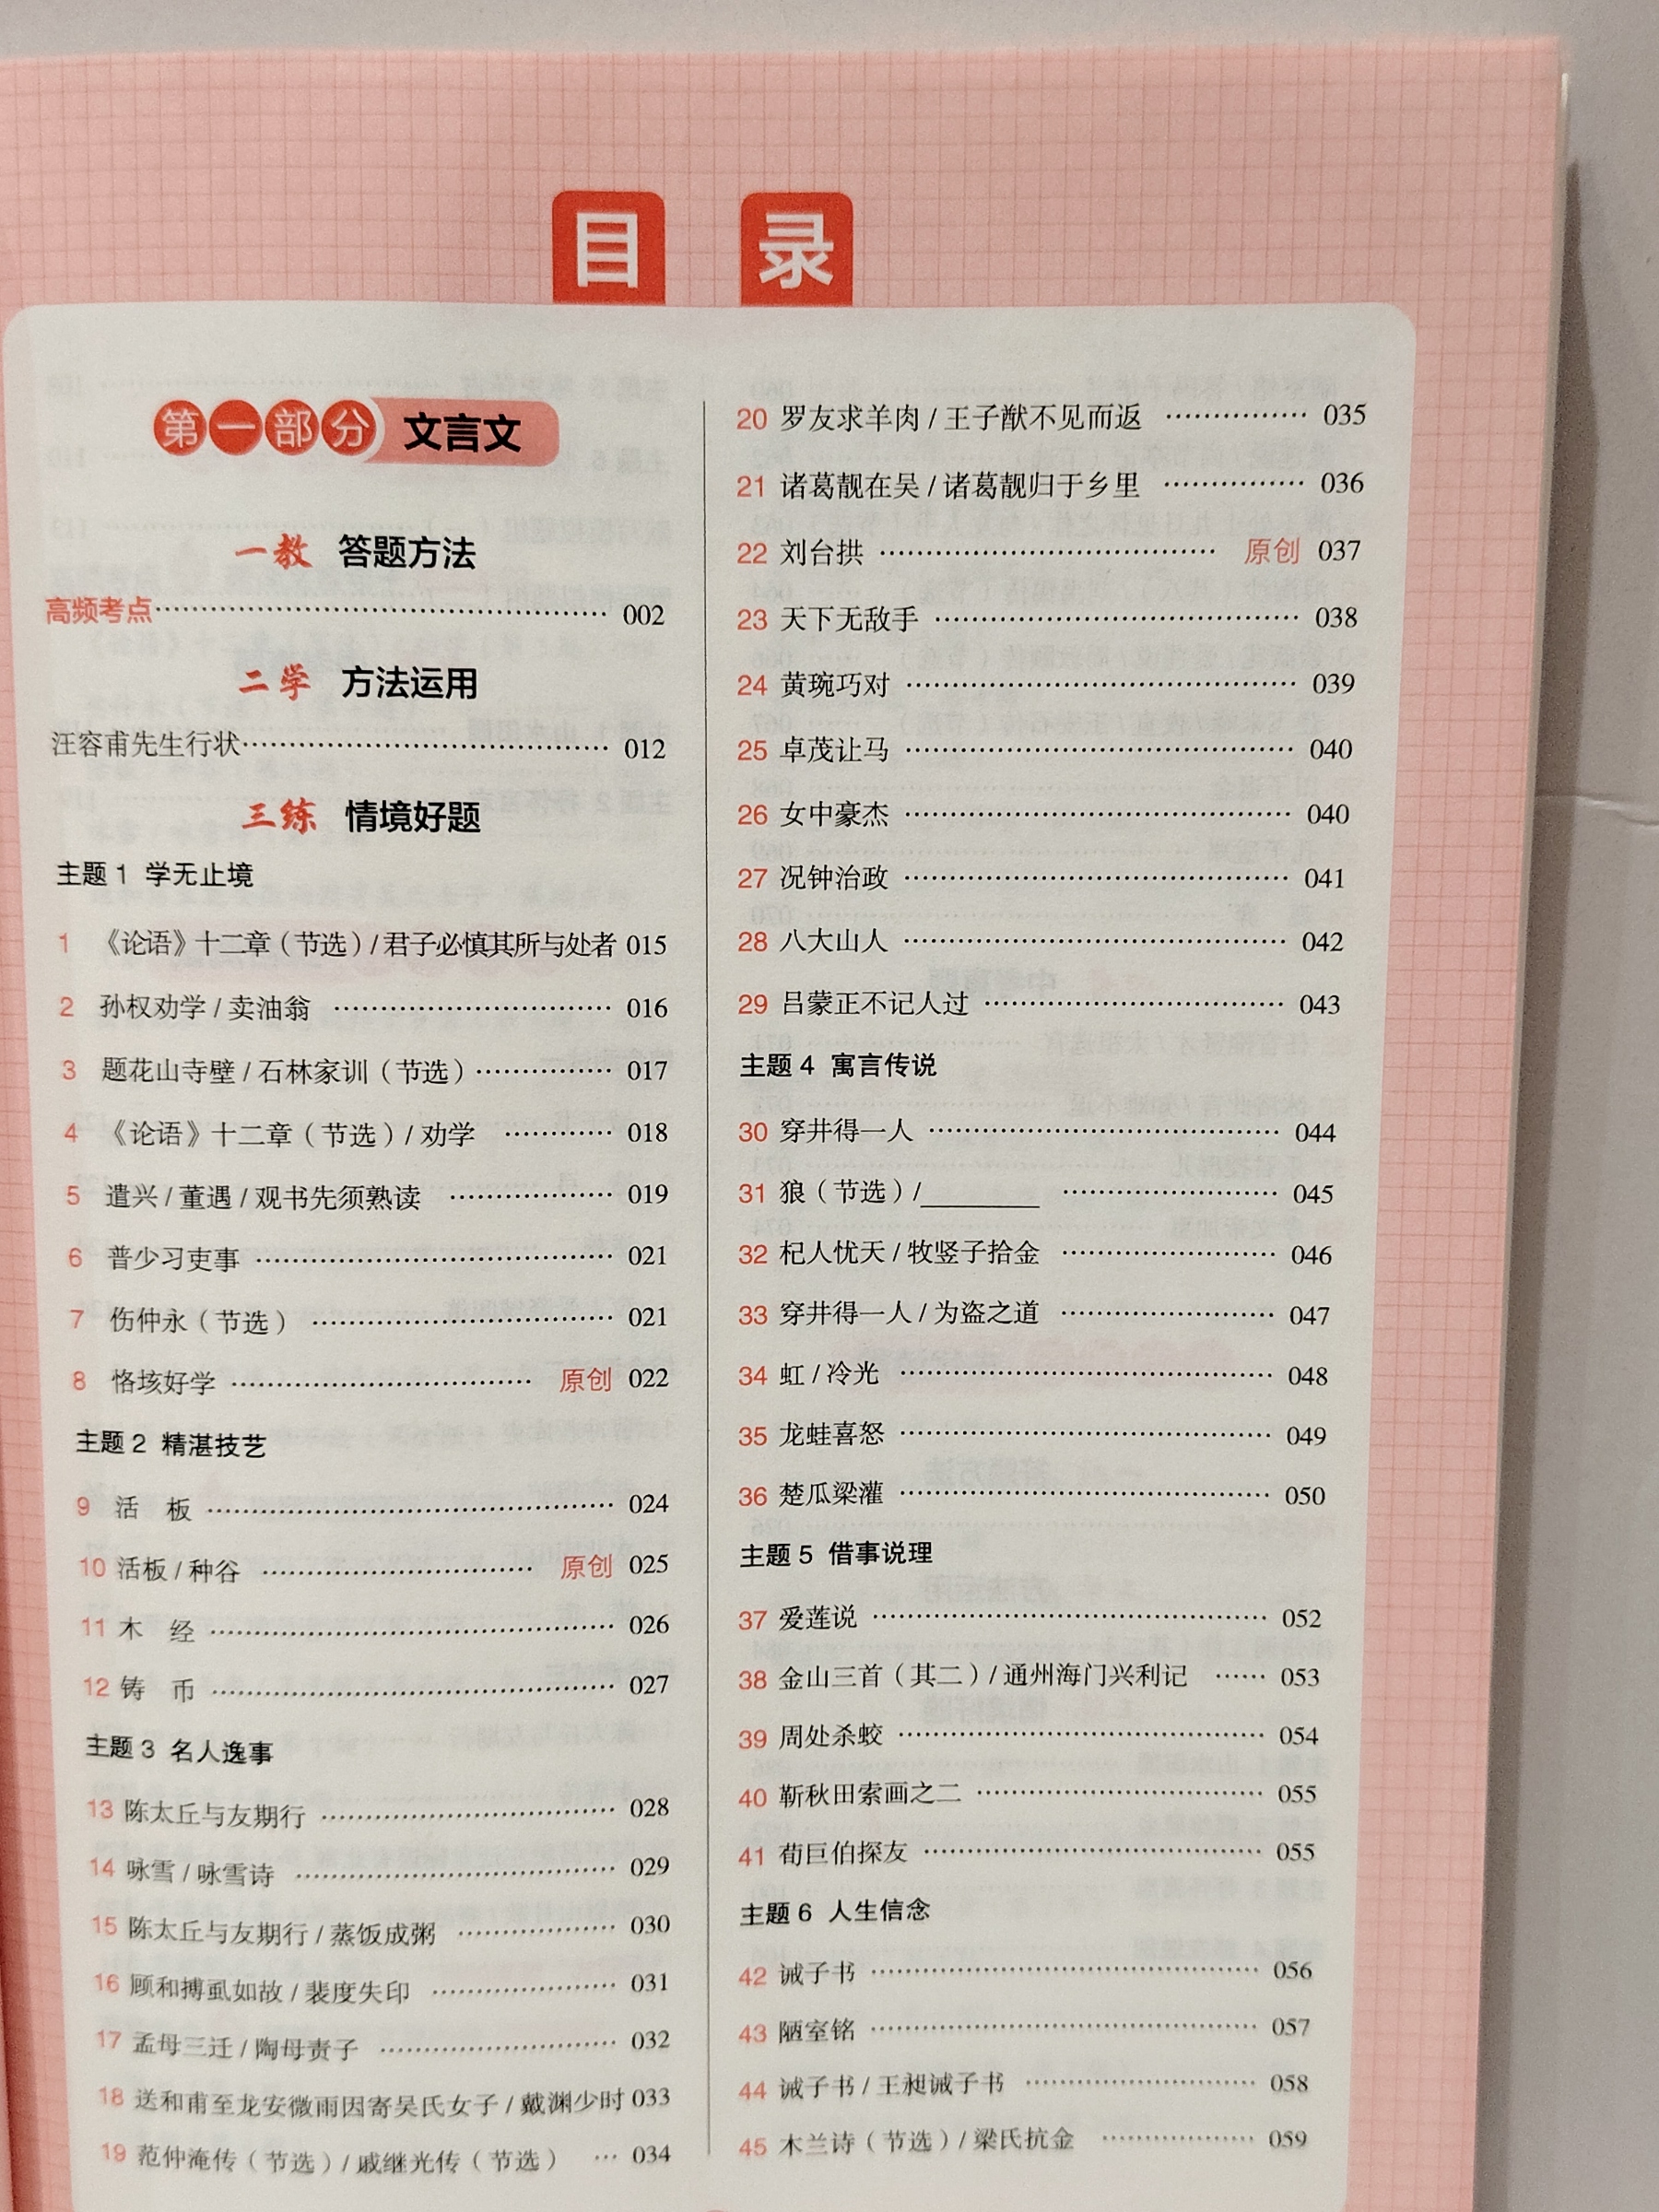 目 录
第一部分 文言文
一教 答题方法
高频考点 002
二学 方法运用
汪容甫先生行状 012
三练 情境好题
主题1 学无止境
1 《论语》十二章（节选）/ 君子必慎其所与处者 015
2 孙权劝学 / 卖油翁 016
3 题花山寺壁 / 石林家训（节选） 017
4 《论语》十二章（节选）/ 劝学 018
5 遣兴 / 董遇 / 观书先须熟读 019
6 普少习吏事 021
7 伤仲永（节选） 021
8 恪垓好学 原创 022
主题2 精湛技艺
9 活 板 024
10 活板 / 种谷 原创 025
11 木 经 026
12 铸 币 027
主题3 名人逸事
13 陈太丘与友期行 028
14 咏雪 / 咏雪诗 029
15 陈太丘与友期行 / 蒸饭成粥 030
16 顾和搏虱如故 / 裴度失印 031
17 孟母三迁 / 陶母责子 032
18 送和甫至龙安微雨因寄吴氏女子 / 戴渊少时 033
19 范仲淹传（节选）/ 戚继光传（节选） 034
20 罗友求羊肉 / 王子猷不见而返 035
21 诸葛靓在吴 / 诸葛靓归于乡里 036
22 刘台拱 原创 037
23 天下无敌手 038
24 黄琬巧对 039
25 卓茂让马 040
26 女中豪杰 040
27 况钟治政 041
28 八大山人 042
29 吕蒙正不记人过 043
主题4 寓言传说
30 穿井得一人 044
31 狼（节选）/________ 045
32 杞人忧天 / 牧竖子拾金 046
33 穿井得一人 / 为盗之道 047
34 虹 / 冷光 048
35 龙蛙喜怒 049
36 楚瓜梁灌 050
主题5 借事说理
37 爱莲说 052
38 金山三首（其二）/ 通州海门兴利记 053
39 周处杀蛟 054
40 靳秋田索画之二 055
41 荀巨伯探友 055
主题6 人生信念
42 诫子书 056
43 陋室铭 057
44 诫子书 / 王昶诫子书 058
45 木兰诗（节选）/ 梁氏抗金 059